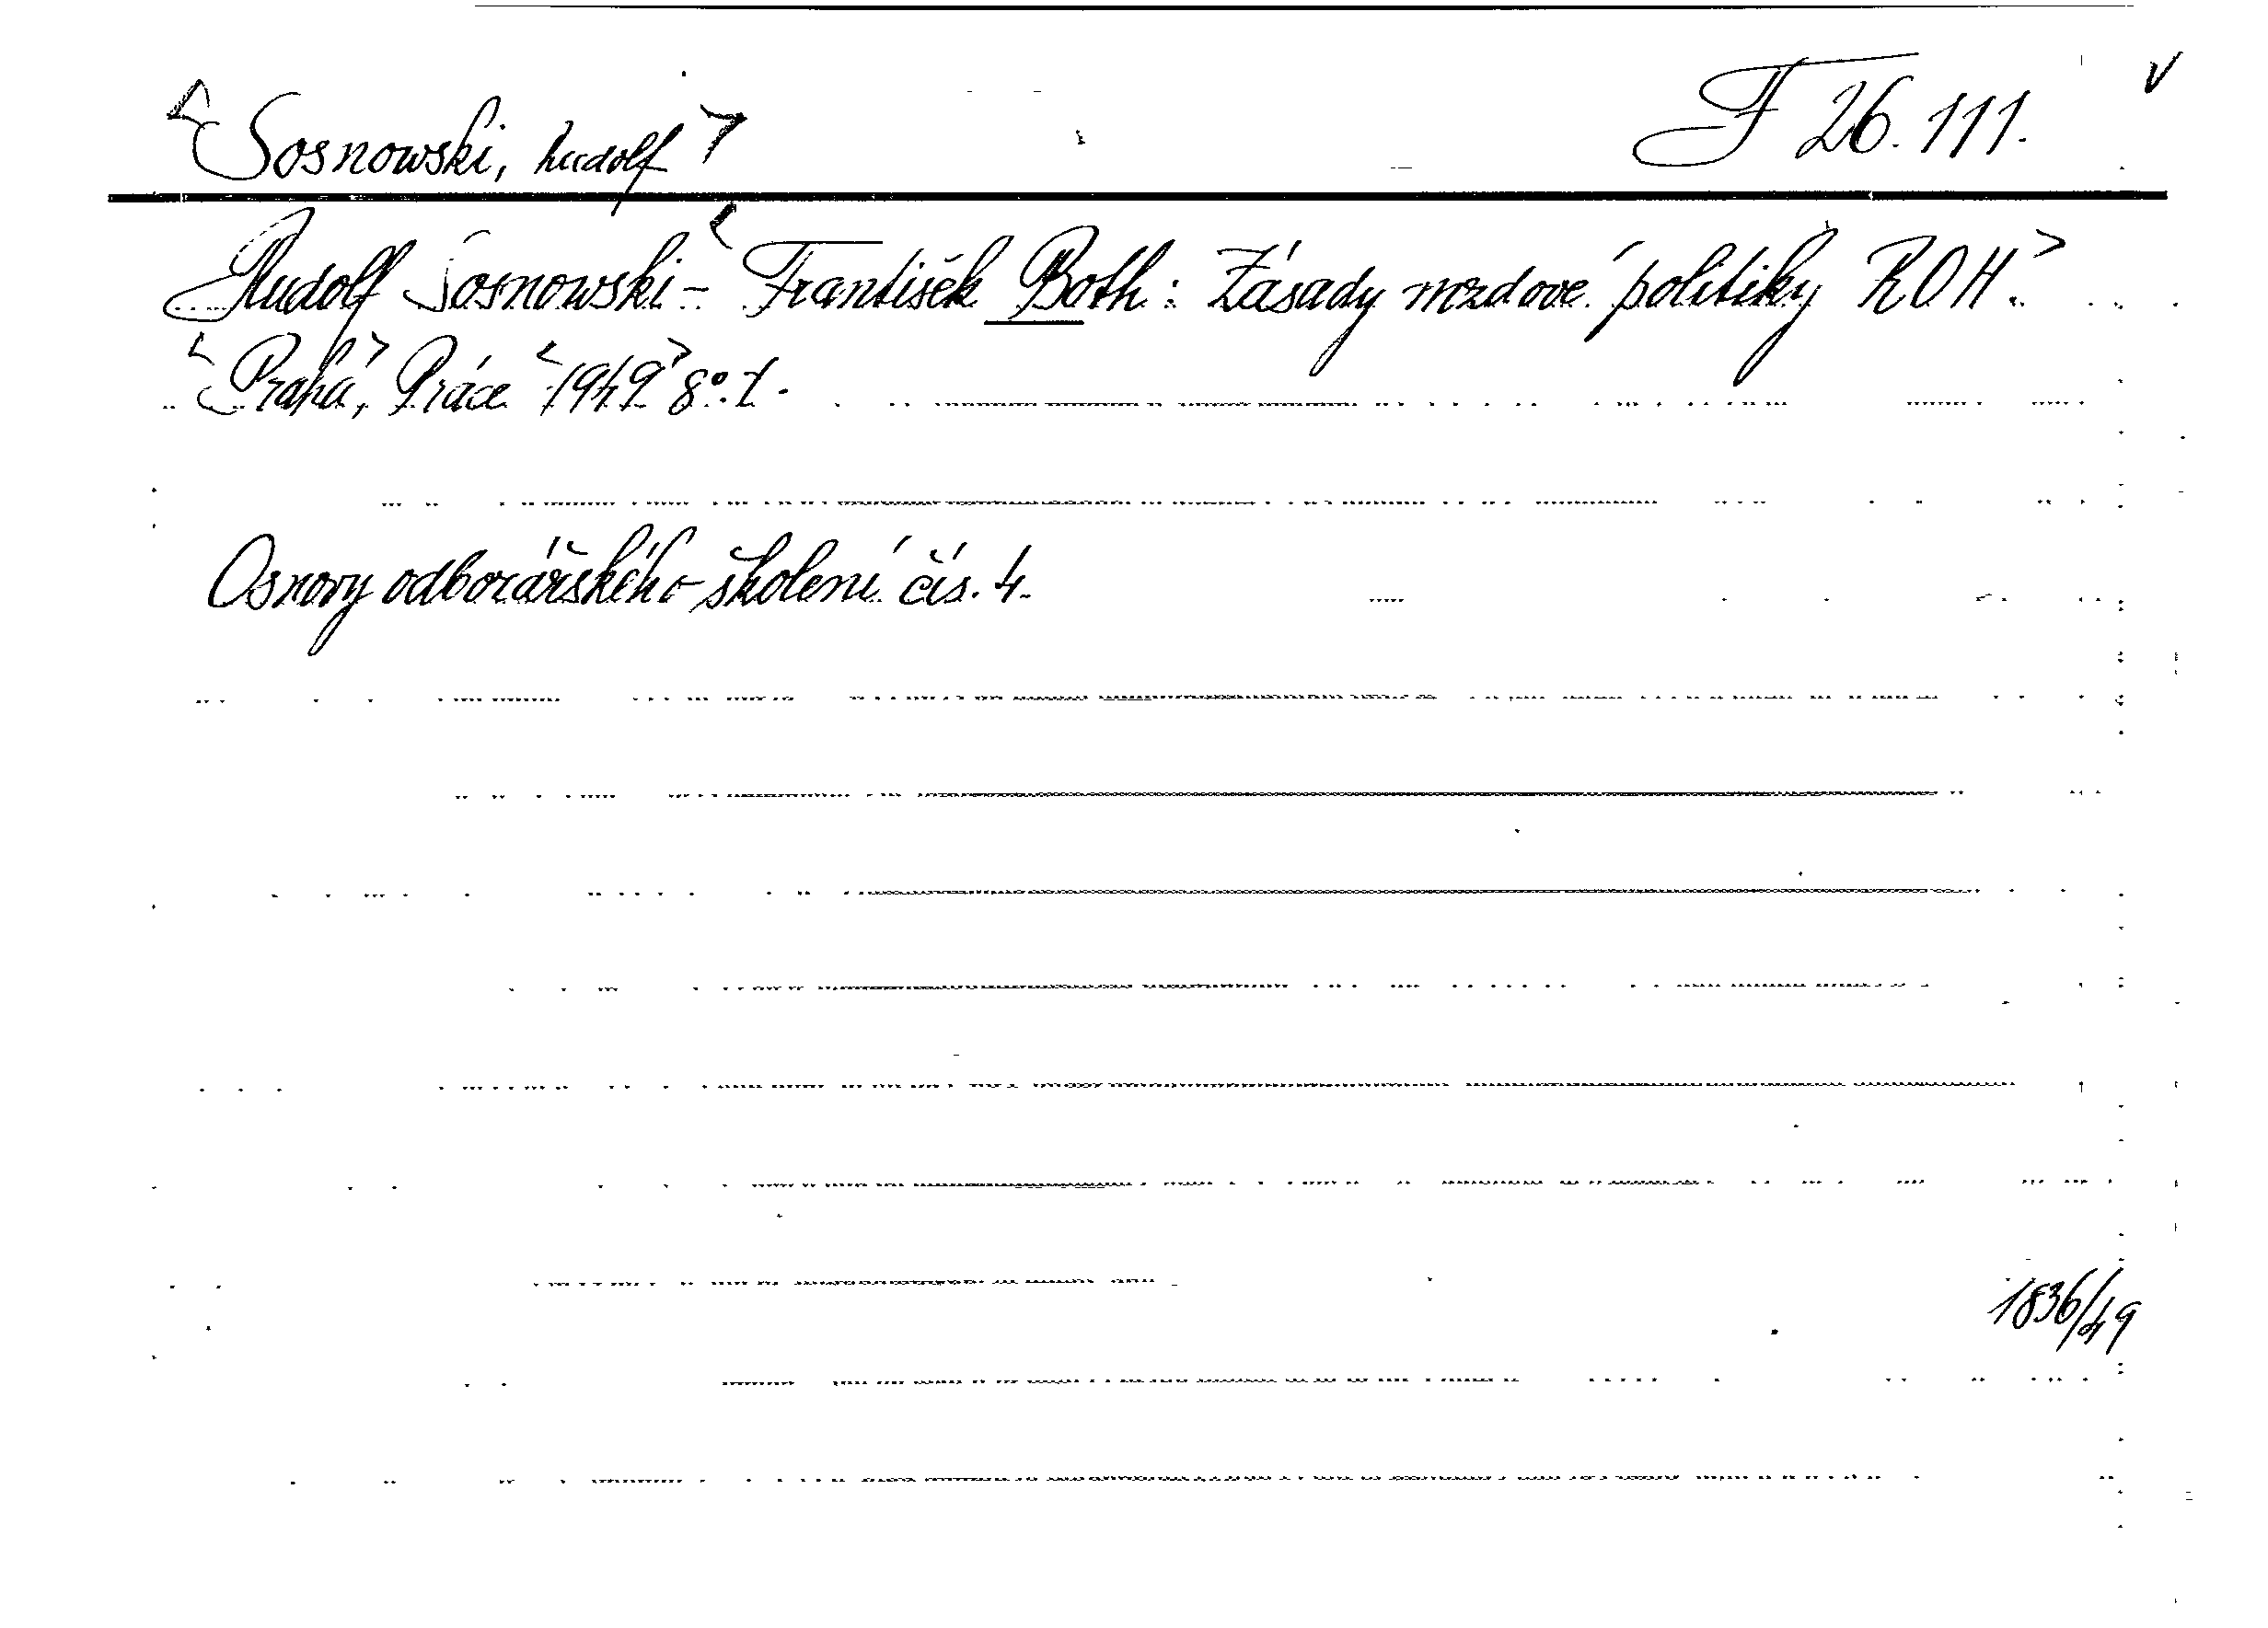 <Sosnowski, Rudolf> F 26.111. v
Rudolf Sosnowski - <František Both: Zásady mzdové politiky ROH.>
<Praha,> Práce <1949> 8°.
Osnovy odborářského školení čís. 4.
1836/49